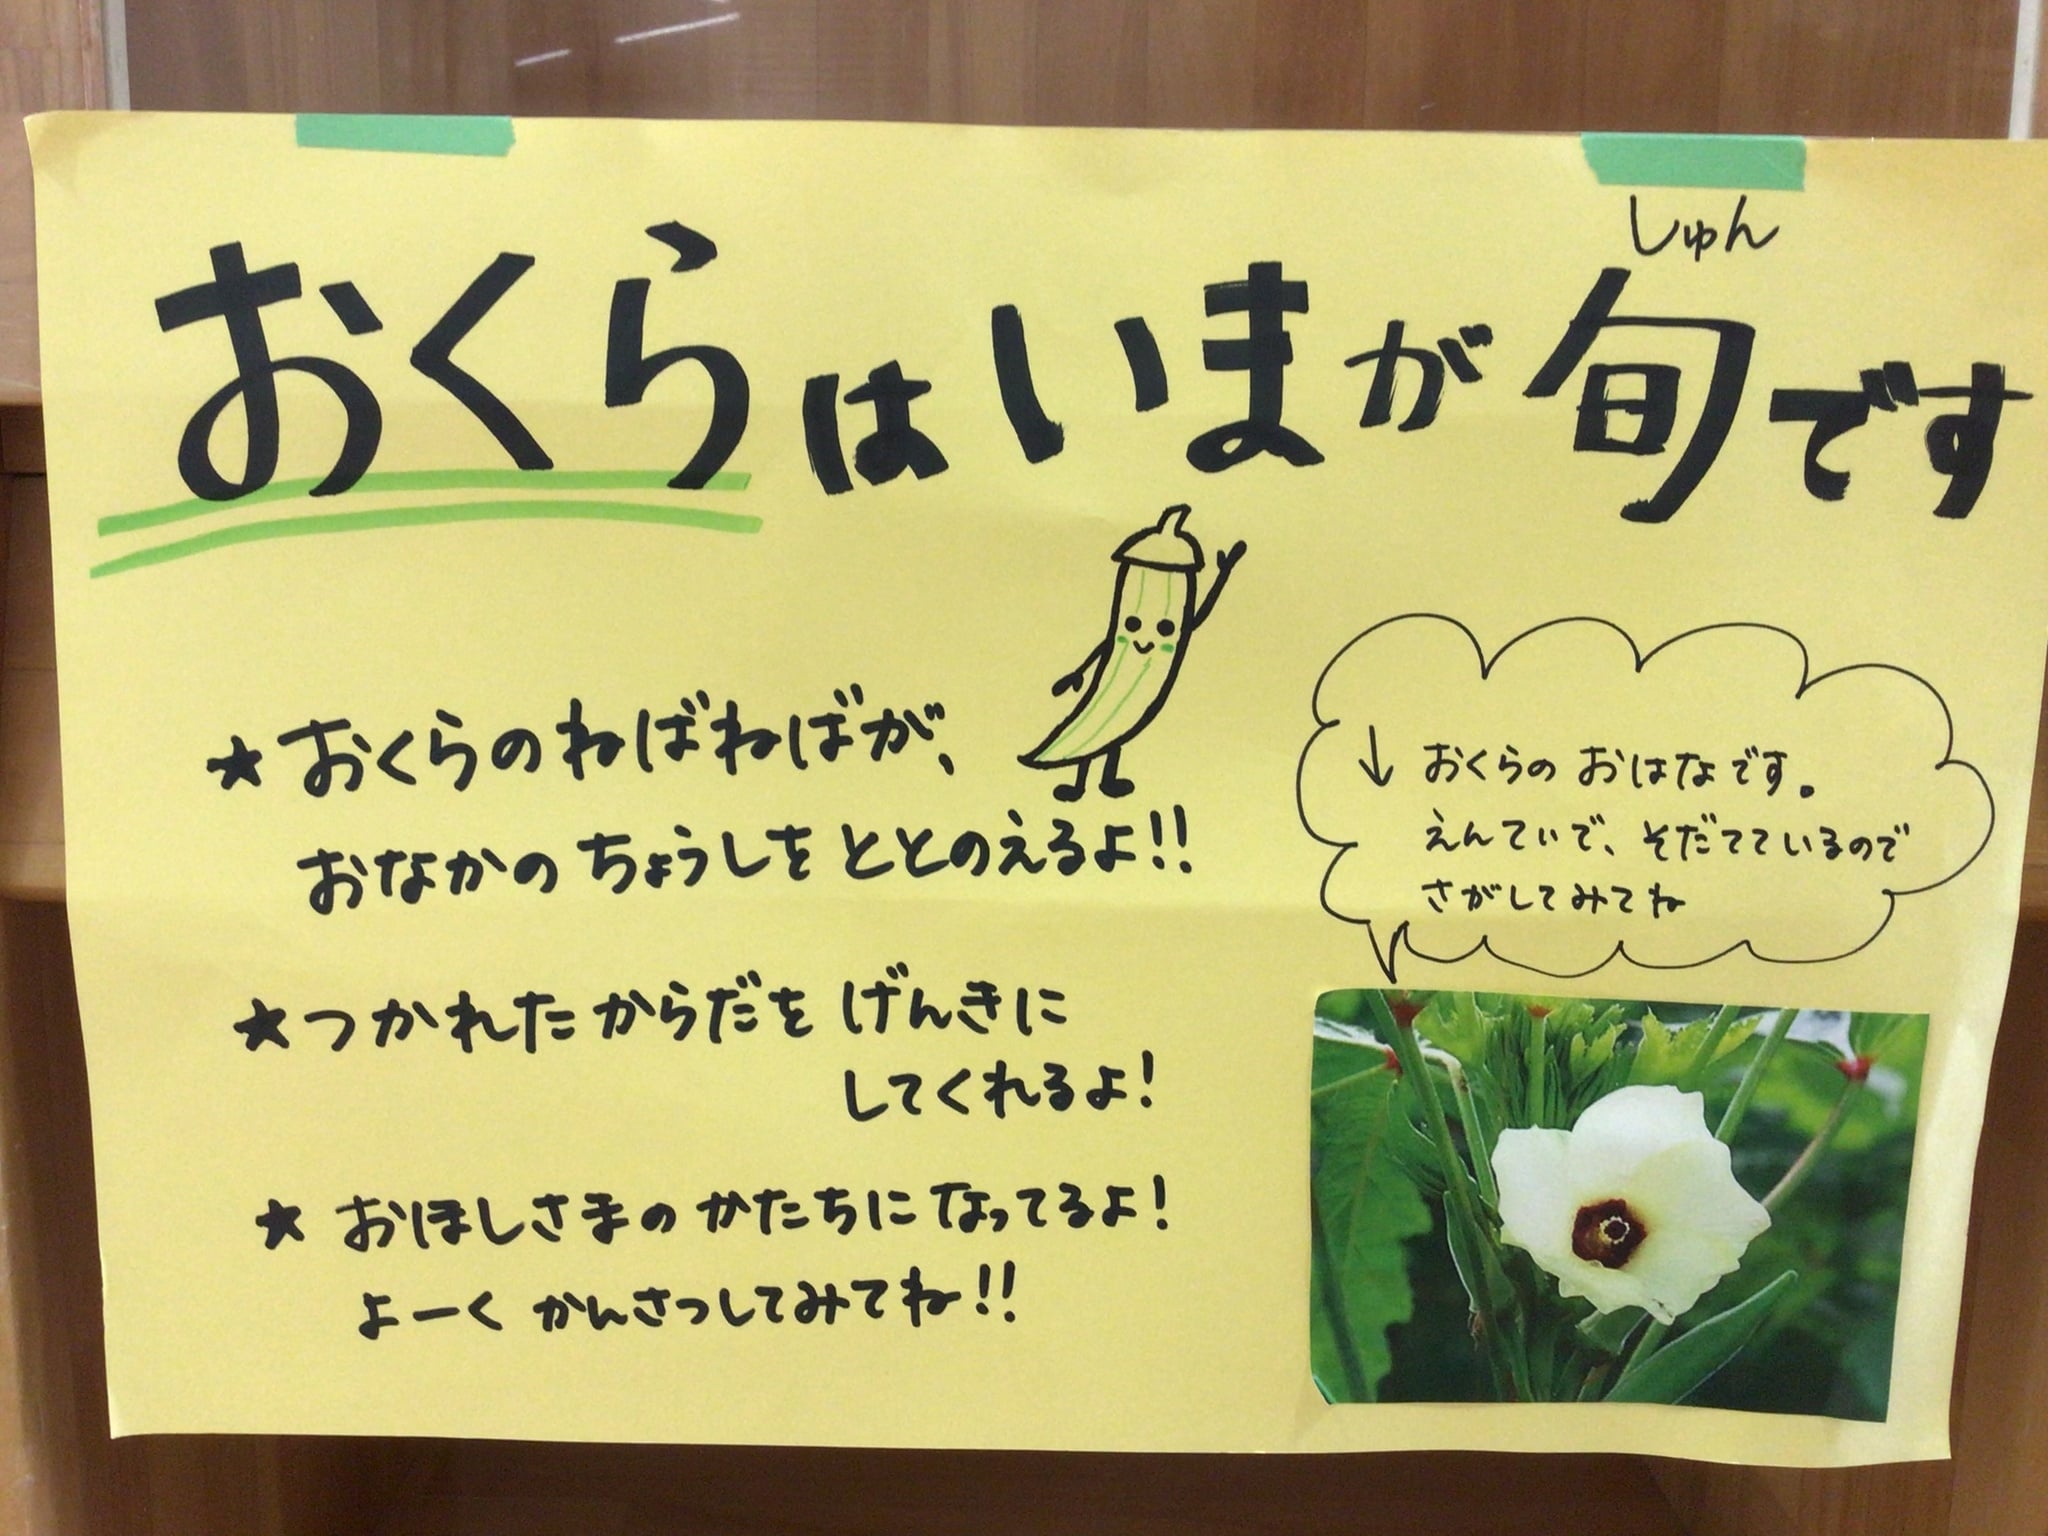 しゅん
おくらはいまが旬です
★おくらのねばねばが、
おなかのちょうしをととのえるよ!!
★つかれたからだをげんきに
してくれるよ!
★おほしさまのかたちになってるよ!
よーくかんさつしてみてね!!
↓おくらのおはなです。
えんてぃで、そだてているので
さがしてみてね